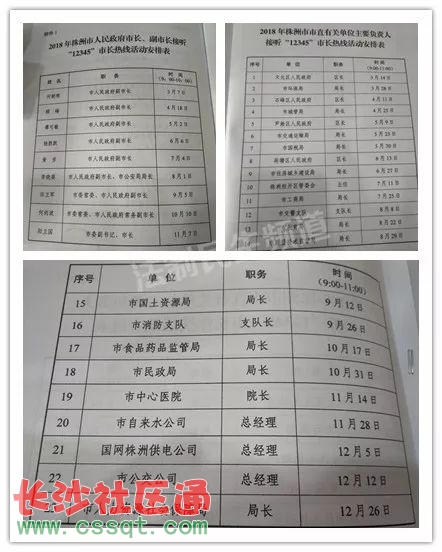 附件1
2018年株洲市人民政府市长、副市长接听
"12345"市长热线活动安排表
姓名 职务 时间
(9:00-10:00)
市人民政府副市长 3月7日
市人民政府副市长 4月18日
市人民政府副市长 5月2日
市人民政府副市长 6月6日
市人民政府副市长 7月4日
市人民政府副市长、市公安局局长 8月1日
市委常委、市人民政府副市长 9月5日
市委常委、市人民政府常务副市长 10月10日
市委副书记、市长 11月7日
2018年株洲市市直有关单位主要负责人
接听"12345"市长热线活动安排表
序号 单位 职务 时间
(9:00-11:00)
1 天元区人民政府 区长 3月14日
2 市环保局 局长 3月28日
3 石峰区人民政府 区长 4月11日
4 市城管局 局长 4月25日
5 芦淞区人民政府 区长 5月9日
6 市交通运输局 局长 5月23日
7 市国税局 局长 5月30日
8 荷塘区人民政府 区长 6月13日
9 市住房城乡建设局 局长 6月27日
10 株洲经开区管委会 主任 7月11日
11 市工商局 局长 7月25日
12 市交警支队 支队长 8月8日
13 局长 8月22日
14 局长 8月29日
法制长安频道
序号 单位 职务 时间
(9:00-11:00)
15 市国土资源局 局长 9月12日
16 市消防支队 支队长 9月26日
17 市食品药品监管局 局长 10月17日
18 市民政局 局长 10月31日
19 市中心医院 院长 11月14日
20 市自来水公司 总经理 11月28日
21 国网株洲供电公司 总经理 12月5日
22 市公交公司 总经理 12月12日
23 市人力资源社会保障局 局长 12月26日
长沙社区通
www.cssqt.com